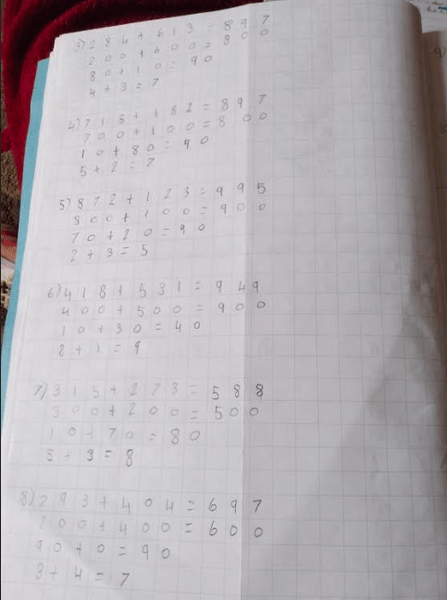 3) 284 + 613 = 897
200 + 600 = 800
80 + 10 = 90
4 + 3 = 7
4) 715 + 182 = 897
700 + 100 = 800
10 + 80 = 90
5 + 2 = 7
5) 872 + 123 = 995
800 + 100 = 900
70 + 20 = 90
2 + 3 = 5
6) 418 + 531 = 949
400 + 500 = 900
10 + 30 = 40
8 + 1 = 9
7) 315 + 273 = 588
300 + 200 = 500
10 + 70 = 80
5 + 3 = 8
8) 293 + 404 = 697
200 + 400 = 600
90 + 0 = 90
3 + 4 = 7